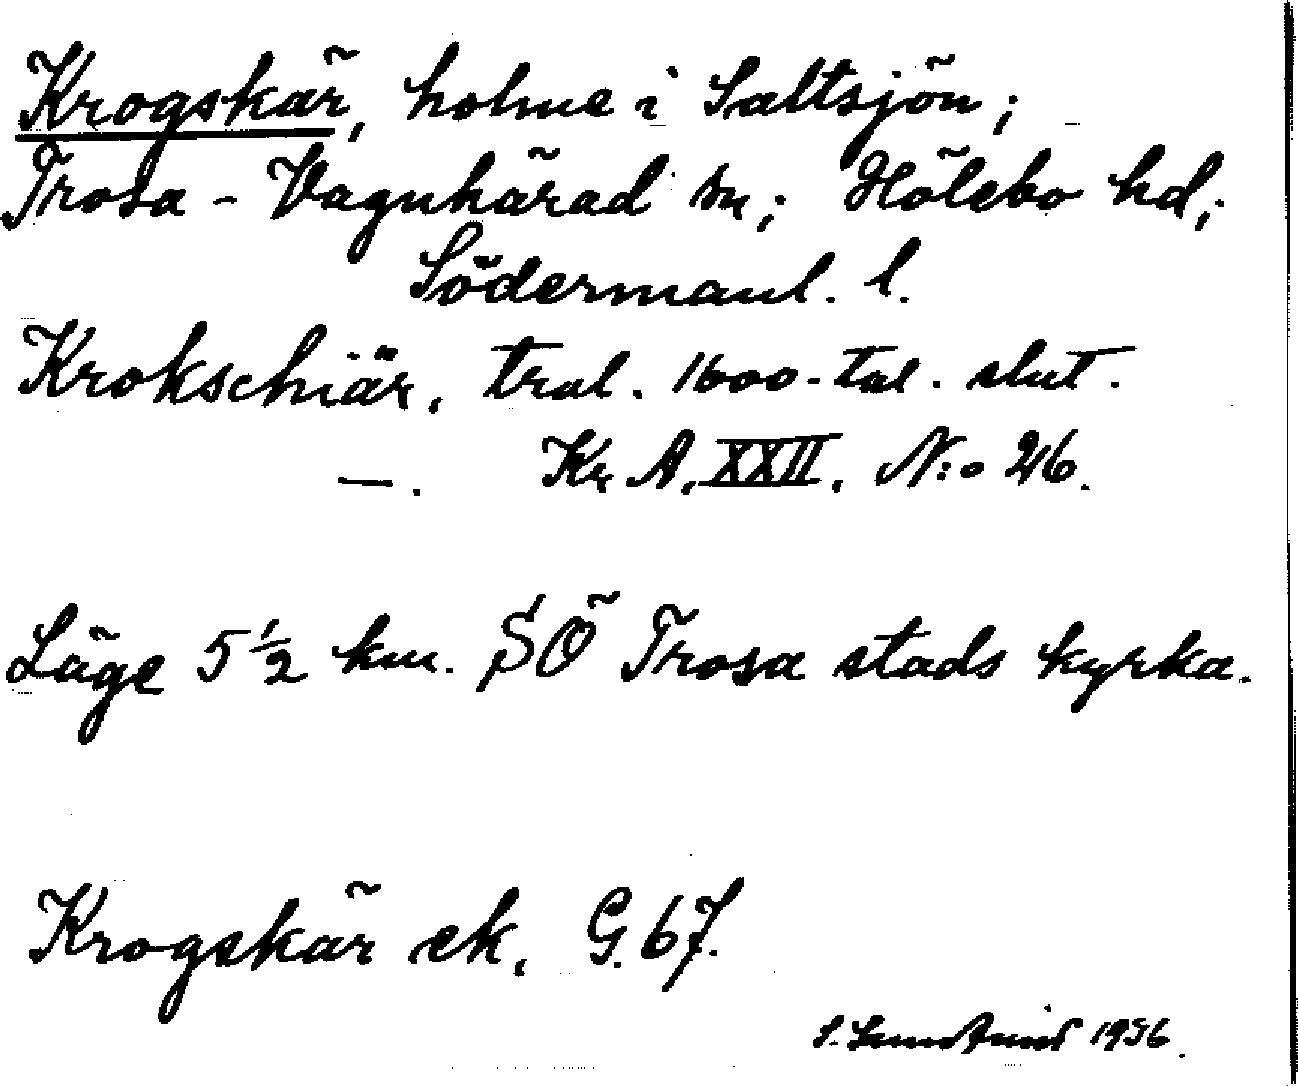 Krogskär, holme i Saltsjön;
Trosa - Vagnhärad sn; Hölebo hd;
Södermanl. l.
Krokschiär, tral. 1600-tal. slut.
—. Kr. A. XXII. N:o 26.
Läge 5 1/2 km. SÖ Trosa stads kyrka.
Krogskär ek. G. 67.
1956